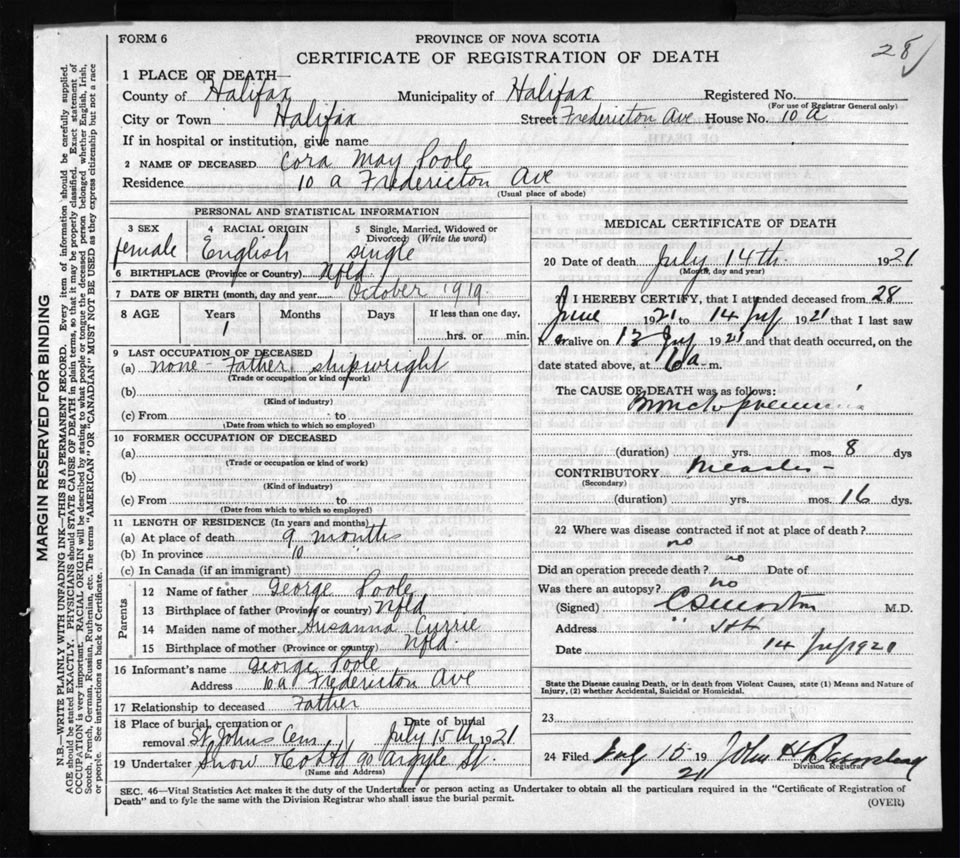 FORM 6
PROVINCE OF NOVA SCOTIA
28
CERTIFICATE OF REGISTRATION OF DEATH
1 PLACE OF DEATH—
County of Halifax Municipality of Halifax Registered No.
(For use of Registrar General only)
City or Town Halifax Street Fredericton Ave House No. 10 a
If in hospital or institution, give name
2 NAME OF DECEASED Cora May Poole
Residence 10 a Fredericton Ave
(Usual place of abode)
PERSONAL AND STATISTICAL INFORMATION
3 SEX female
4 RACIAL ORIGIN English
5 Single, Married, Widowed or Divorced (Write the word) single
6 BIRTHPLACE (Province or Country) Nfld.
7 DATE OF BIRTH (month, day and year October 1919.
8 AGE Years Months Days If less than one day,
1 hrs. or min.
9 LAST OCCUPATION OF DECEASED
(a) none - Father shipwright
(Trade or occupation or kind of work)
(b)
(Kind of industry)
(c) From to
(Date from which to which so employed)
10 FORMER OCCUPATION OF DECEASED
(a)
(Trade or occupation or kind of work)
(b)
(Kind of industry)
(c) From to
(Date from which to which so employed)
11 LENGTH OF RESIDENCE (In years and months)
(a) At place of death 9 months
(b) In province 10
(c) In Canada (if an immigrant)
Parents
12 Name of father George Poole
13 Birthplace of father (Province or country) Nfld
14 Maiden name of mother Susanna Currie
15 Birthplace of mother (Province or country) Nfld.
16 Informant's name George Poole
Address 10 a Fredericton Ave
17 Relationship to deceased Father
18 Place of burial, cremation or Date of burial
removal St Johns Cem July 15th 1921
19 Undertaker Snow & Co Ltd 90 Argyle St.
(Name and Address)
MEDICAL CERTIFICATE OF DEATH
20 Date of death July 14th 1921
(Month, day and year)
21 I HEREBY CERTIFY, that I attended deceased from 28
June 1921 to 14 July 1921 that I last saw
h er alive on 13 July 1921 and that death occurred, on the
date stated above, at a m.
The CAUSE OF DEATH was as follows:
Broncho pneumonia
(duration) yrs. mos. 8 dys
CONTRIBUTORY Measles -
(Secondary)
(duration) yrs. mos. 16 dys.
22 Where was disease contracted if not at place of death?
no
Did an operation precede death? no Date of
Was there an autopsy? no
(Signed) M.D.
Address
Date 14 July 1921
State the Disease causing Death, or in death from Violent Causes, state (1) Means and Nature of
Injury, (2) whether Accidental, Suicidal or Homicidal.
23
24 Filed July 15 1921 John H
Division Registrar
SEC. 46—Vital Statistics Act makes it the duty of the Undertaker or person acting as Undertaker to obtain all the particulars required in the "Certificate of Registration of
Death" and to fyle the same with the Division Registrar who shall issue the burial permit.
(OVER)
MARGIN RESERVED FOR BINDING
N.B.—WRITE PLAINLY WITH UNFADING INK—THIS IS A PERMANENT RECORD. Every item of information should be carefully supplied.
AGE should be stated EXACTLY. PHYSICIANS should STATE CAUSE OF DEATH in plain terms, so that it may be properly classified. Exact statement of
OCCUPATION is very important. RACIAL ORIGIN will be described by stating to what people or tongue the deceased person belonged whether English, Irish,
Scotch, French, German, Russian, Ruthenian, etc. The terms "AMERICAN" OR "CANADIAN" MUST NOT BE USED as they express citizenship but not a race
or people. See instructions on back of Certificate.